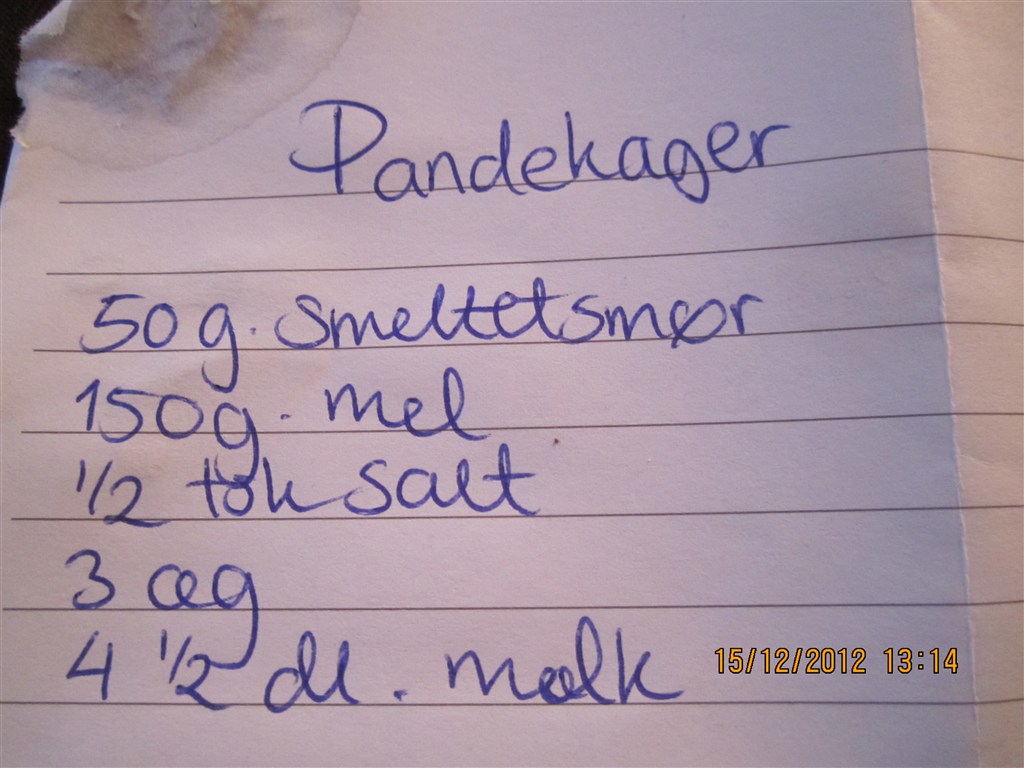 Pandekager
50 g. smeltet smør
150 g. mel
1/2 tsk salt
3 æg
4 1/2 dl. mælk
15/12/2012 13:14